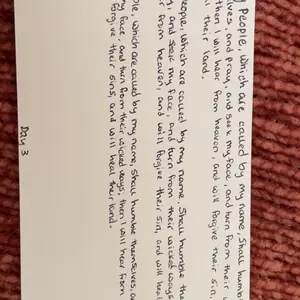 people, which are called by my name, shall humb
lves, and pray, and seek my face, and turn from their
then I will hear from heaven, and will forgive their sin,
l their land.
people, which are called by my name, shall humble the
, and seek my face, and turn from their wicked ways
r from heaven, and will forgive their sin, and will heal
ple, which are called by my name, shall humble themselves, a
my face, and turn from their wicked ways; then I will hear from
forgive their sins, and will heal their land.
Day 3